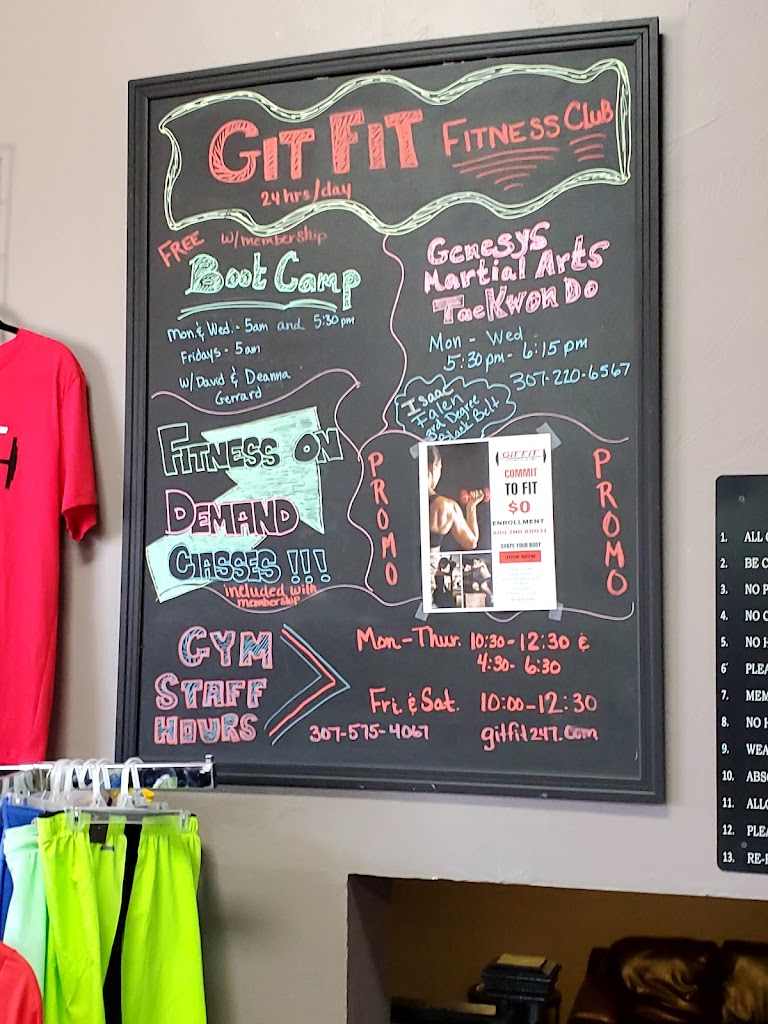 GIT FIT FITNESS CLUB
24 hrs/day
FREE w/membership
Boot Camp
Mon & Wed. - 5am and 5:30pm
Fridays - 5am
w/David & Deanna
Gerrard
Genesys
Martial Arts
TaeKwon Do
Mon - Wed
5:30pm - 6:15pm
307-220-6567
Isaac
Falen
3rd Degree
Black Belt
FITNESS ON
DEMAND
CLASSES !!!
included with
membership
PROMO
GIT FIT
COMMIT
TO FIT
$0
ENROLLMENT
SHAPE YOUR BODY
JOIN NOW
PROMO
GYM
STAFF
HOURS
Mon-Thur. 10:30-12:30 &
4:30-6:30
Fri. & Sat. 10:00-12:30
307-575-4067 gitfit247.com
1. ALL
2. BE
3. NO
4. NO
5. NO
6. PLEA
7. MEM
8. NO
9. WEA
10. ABSO
11. ALLO
12. PLEA
13. RE-